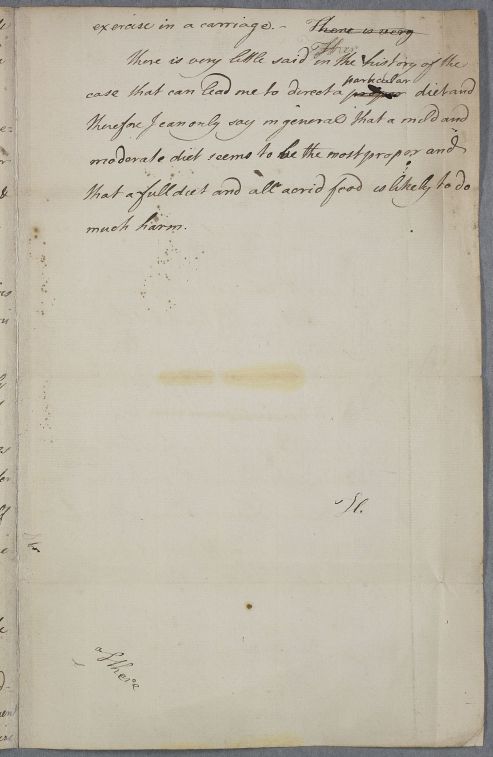 exercise in a carriage. - There is very
Ther
There is very little said in the history of the
particular
case that can lead me to direct a proper diet and
therefore I can only say in general that a mild and
moderate diet seems to be the most proper and
that a full diet and all acrid food is likely to do
much harm.
There